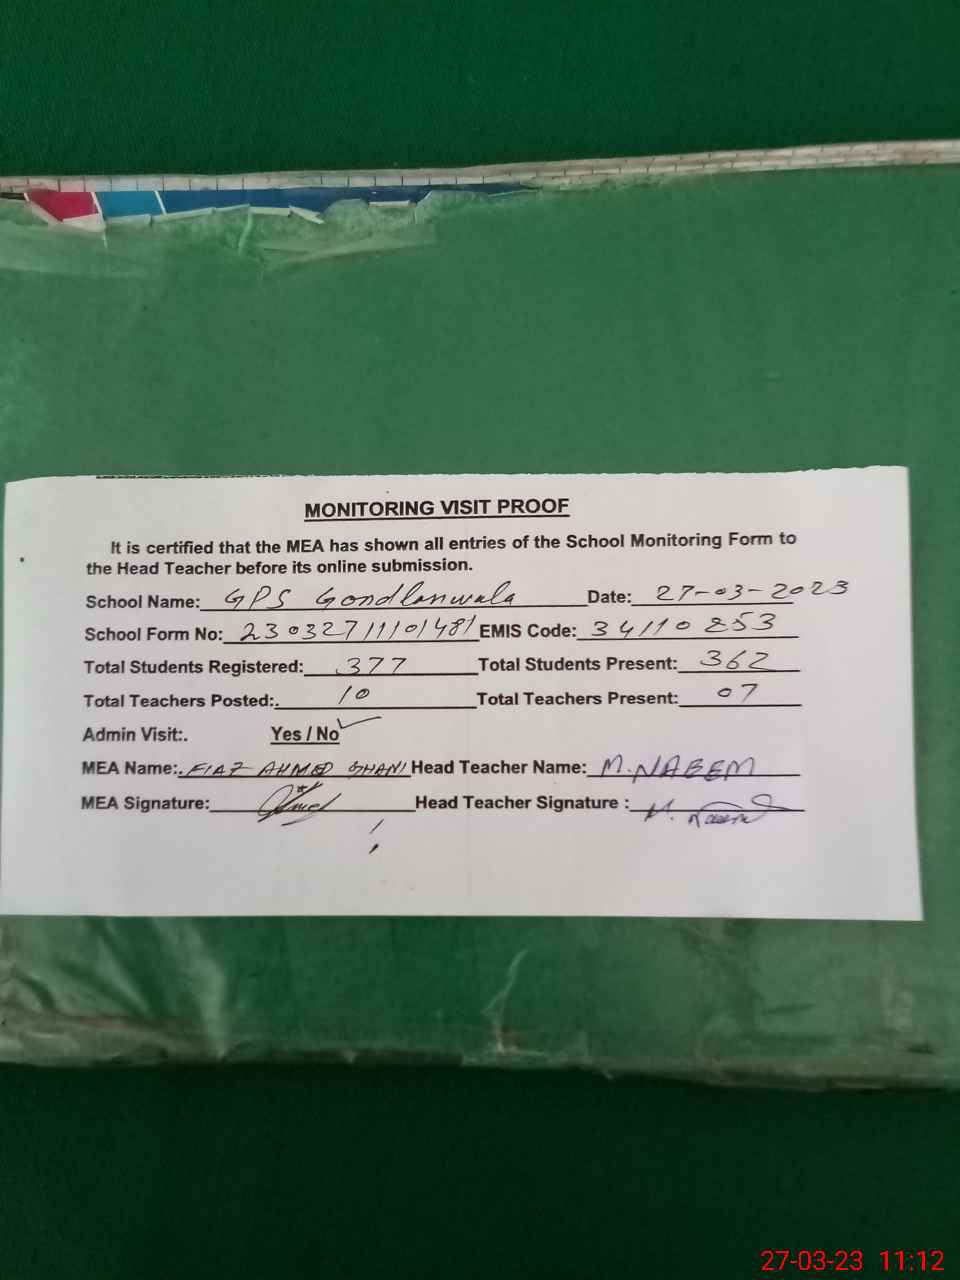 MONITORING VISIT PROOF
It is certified that the MEA has shown all entries of the School Monitoring Form to
the Head Teacher before its online submission.
School Name: GPS Gondlanwala Date: 27-03-2023
School Form No: 230327111101481 EMIS Code: 34110253
Total Students Registered: 377 Total Students Present: 362
Total Teachers Posted:. 10 Total Teachers Present: 07
Admin Visit:. Yes / No
MEA Name:. FIAZ AHMED GHANI Head Teacher Name: M.NAEEM
MEA Signature: Head Teacher Signature : M. Naeem
27-03-23 11:12